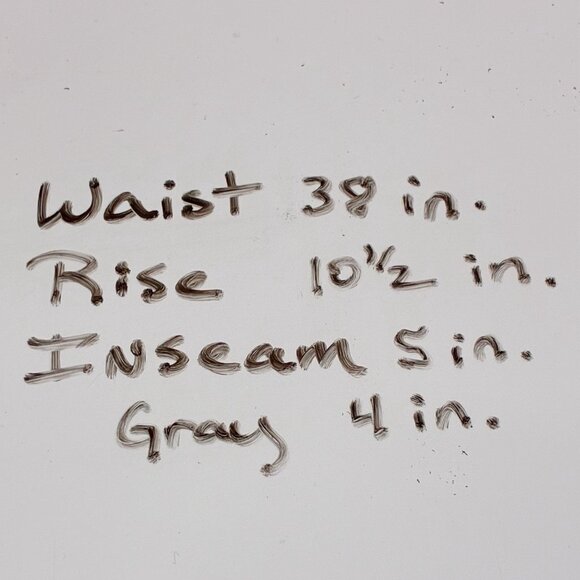 Waist 38 in.
Rise 10½ in.
Inseam 5 in.
Gray 4 in.